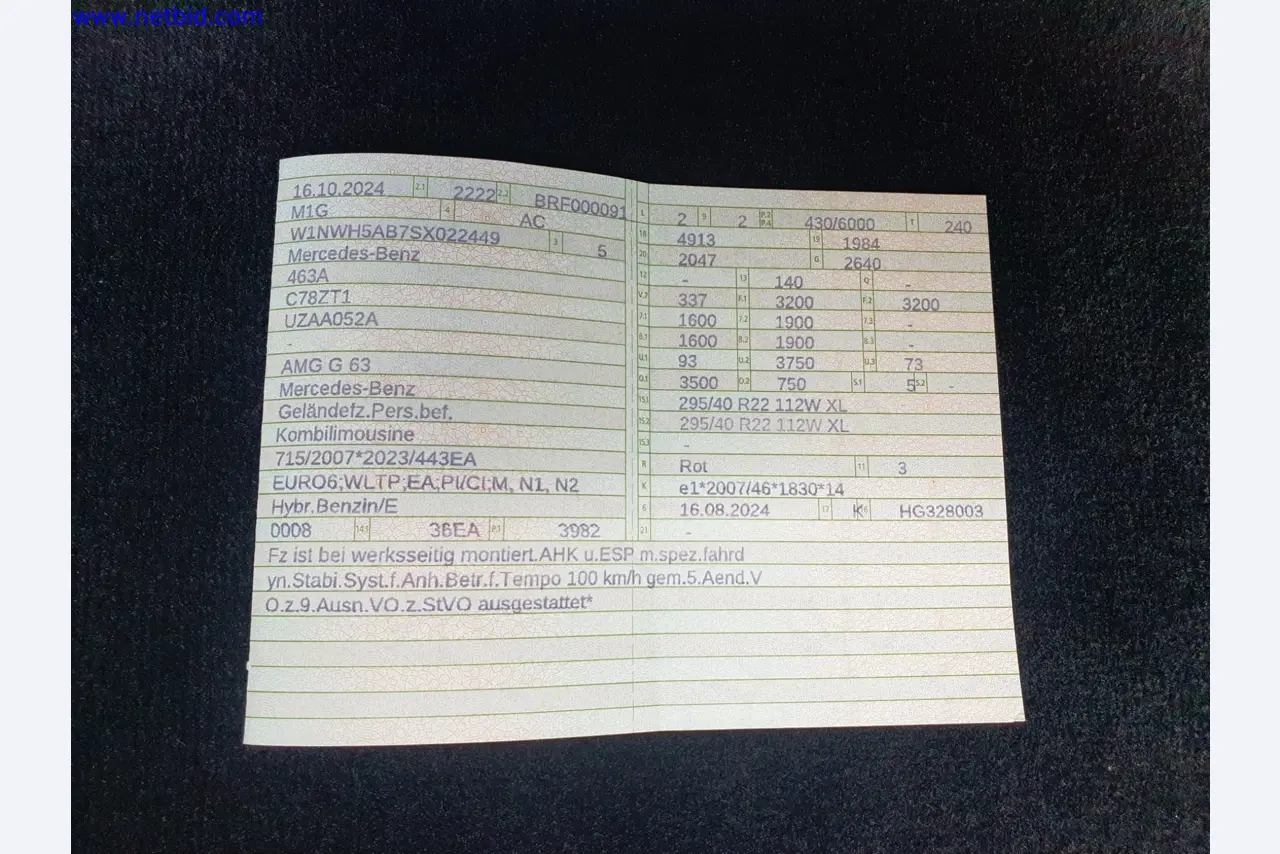 www.netbid.com
16.10.2024 2.1 2222 2.2 BRF000091
M1G 4 AC
W1NWH5AB7SX022449 3 5
Mercedes-Benz
463A
C78ZT1
UZAA052A
-
AMG G 63
Mercedes-Benz
Geländefz.Pers.bef.
Kombilimousine
715/2007*2023/443EA
EURO6;WLTP;EA;PI/CI;M, N1, N2
Hybr.Benzin/E
0008 14.1 36EA P.1 3982
L 2 9 2 P.2 P.4 430/6000 T 240
18 4913 19 1984
20 2047 G 2640
12 - 13 140 Q -
V.7 337 F.1 3200 F.2 3200
7.1 1600 7.2 1900 7.3 -
8.1 1600 8.2 1900 8.3 -
U.1 93 U.2 3750 U.3 73
O.1 3500 O.2 750 S.1 5 S.2 -
15.1 295/40 R22 112W XL
15.2 295/40 R22 112W XL
15.3 -
R Rot 11 3
K e1*2007/46*1830*14
6 16.08.2024 17 K 16 HG328003
21 -
Fz ist bei werksseitig montiert.AHK u.ESP m.spez.fahrd
yn.Stabi.Syst.f.Anh.Betr.f.Tempo 100 km/h gem.5.Aend.V
O.z.9.Ausn.VO.z.StVO ausgestattet*